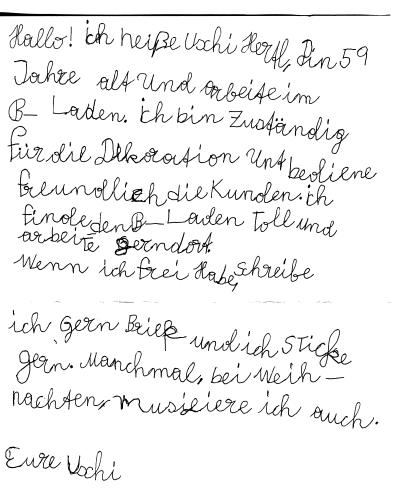 Hallo! ich heiße Uschi Hertl, Bin 59
Jahre alt Und arbeite im
B- Laden. ich bin Zuständig
für die Dekoration Unt bediene
freundlich die Kunden. ich
finde den B- Laden Toll und
arbeite gerndort
Wenn ich frei Habe, schreibe
ich Gern Briefe und ich Sticke
gern. Manchmal, bei Weih-
nachten, musiziere ich auch.
Eure Uschi